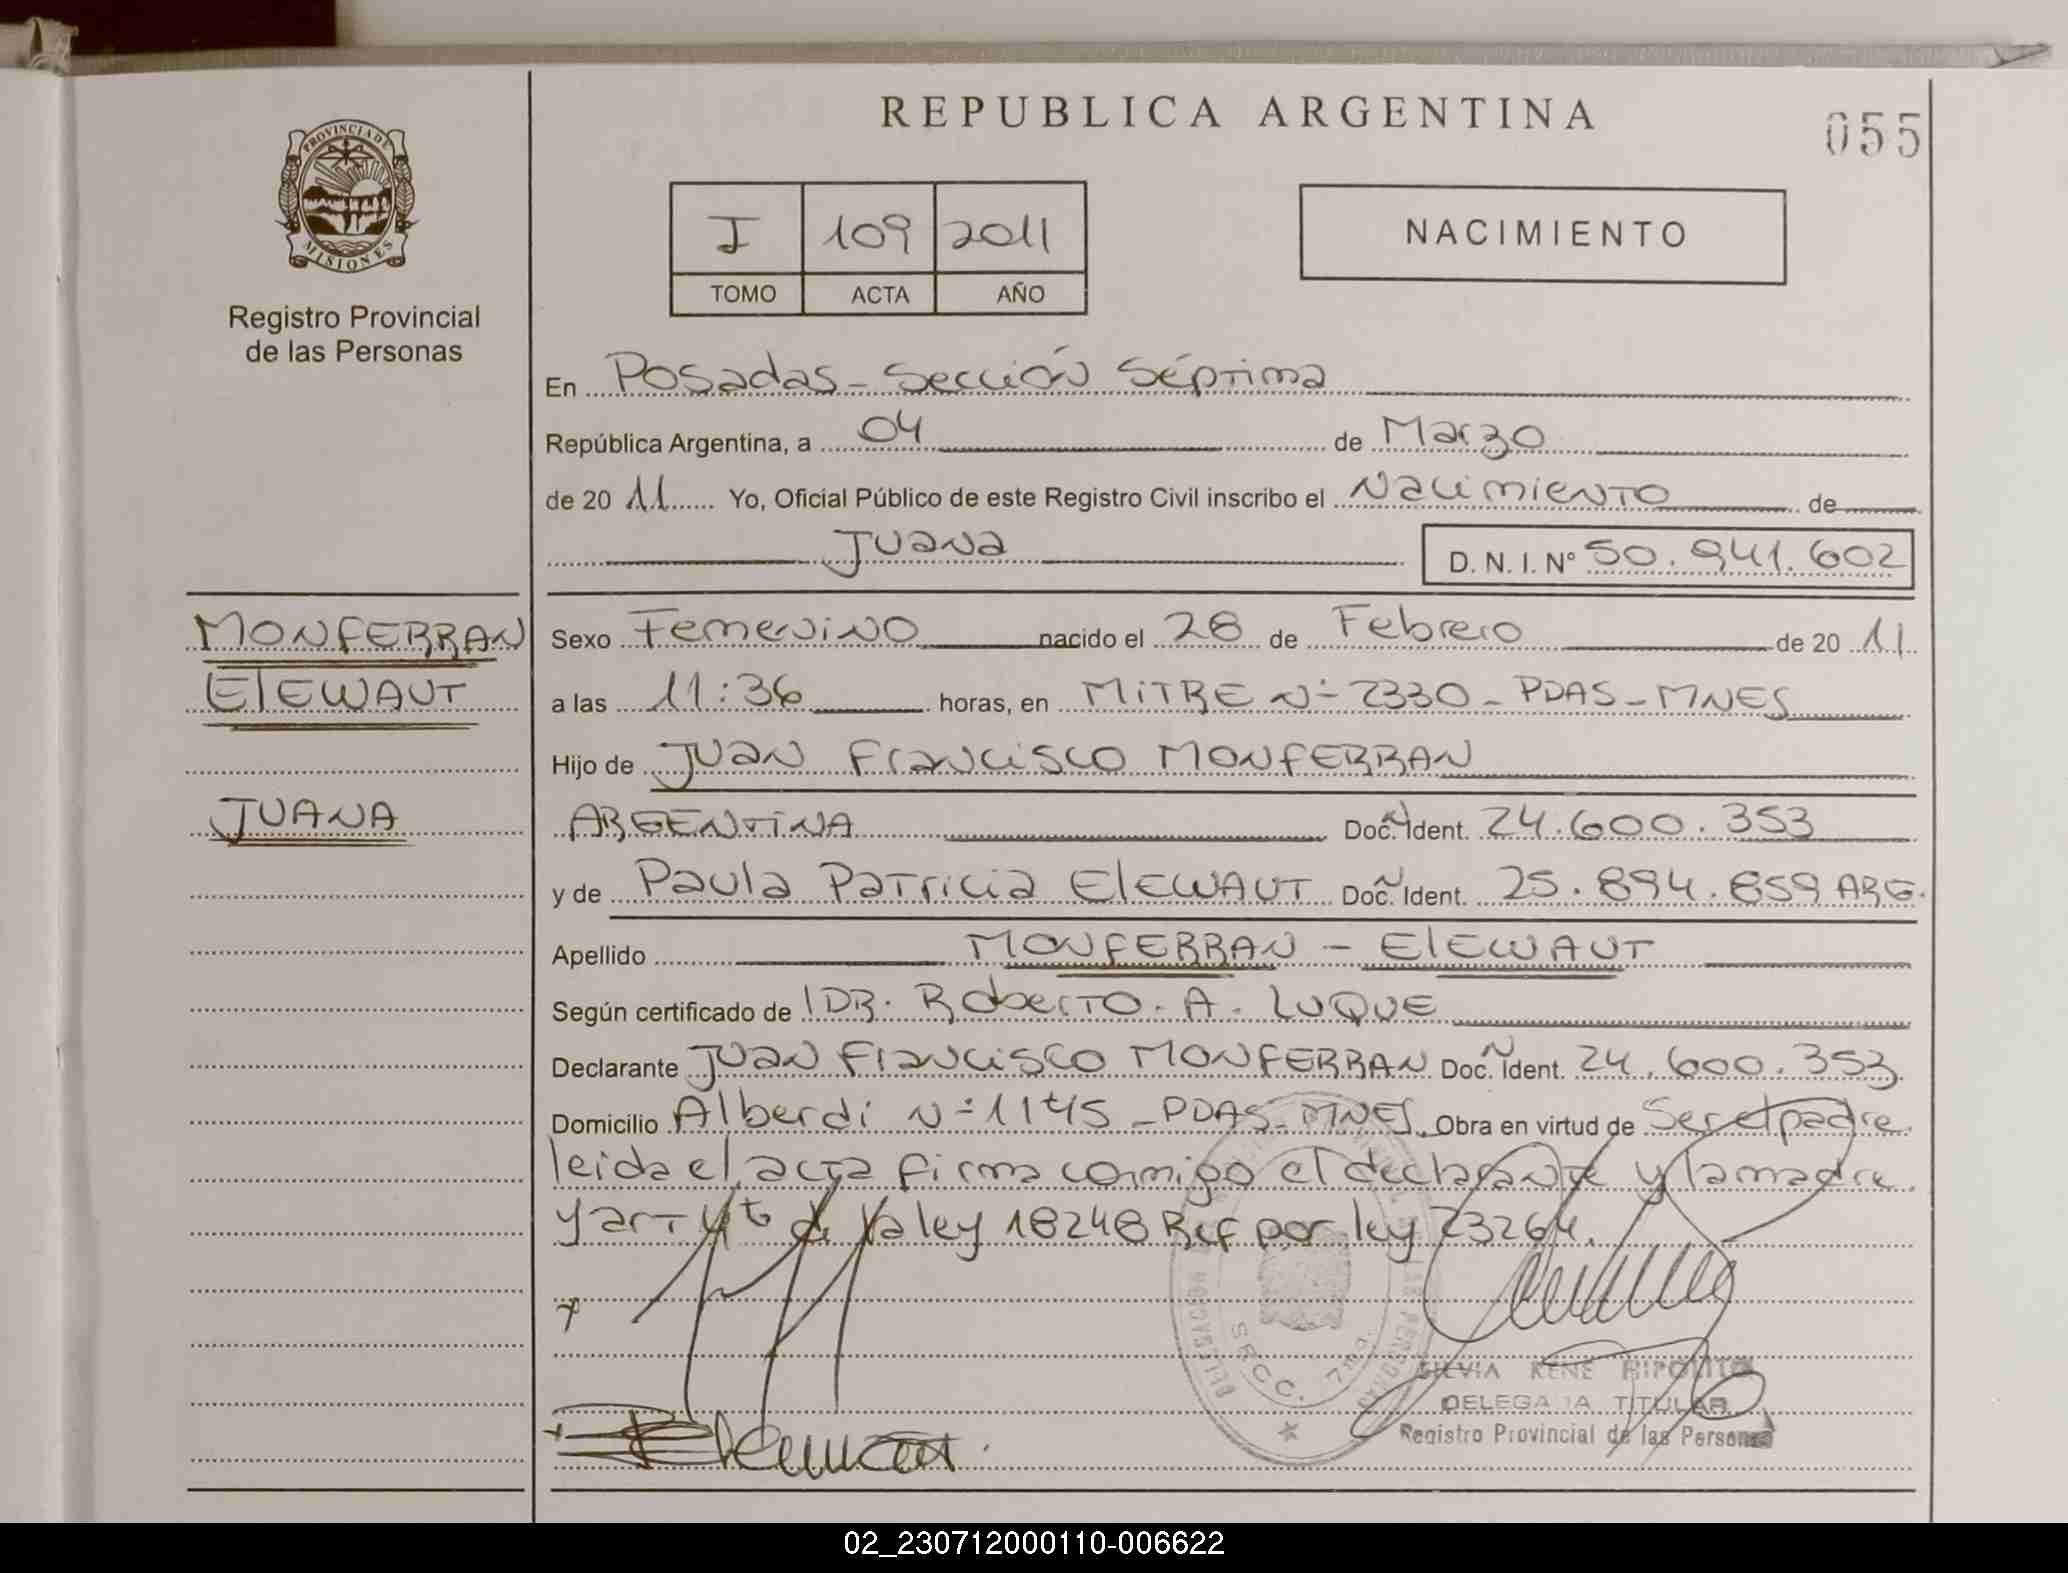 REPUBLICA ARGENTINA
055
PROVINCIA DE
MISIONES
Registro Provincial
de las Personas
I 109 2011
TOMO ACTA AÑO
NACIMIENTO
En Posadas - Sección Séptima
República Argentina, a 04 de Marzo
de 20 11 Yo, Oficial Público de este Registro Civil inscribo el Nacimiento de
Juana D. N. I. Nº 50.941.602
MONFERRAN
ElEWAUT
JUANA
Sexo Femenino nacido el 28 de Febrero de 20 11
a las 11:36 horas, en MiTRE Nº 2330 - PDAS - MNES
Hijo de Juan Francisco MONFERRAN
ARGENTINA Doc. Ident. 24.600.353
y de Paula Patricia ElEWAUT Doc. Ident. 25.894.859 ARG.
Apellido MONFERRAN - ElEWAUT
Según certificado de DR. Roberto. A. LUQUE
Declarante Juan Francisco MONFERRAN Doc. Ident. 24.600.353
Domicilio Alberdi Nº 1145 - PDAS - MNES. Obra en virtud de Ser el padre
leida el acta firma conmigo el declarante y la madre
y art 4to de la ley 18248 Ref por ley 23264.
DELEGACION
SECC. 7ma.
SILVIA RENE HIPOLITO
DELEGADA TITULAR
Registro Provincial de las Personas
02_230712000110-006622